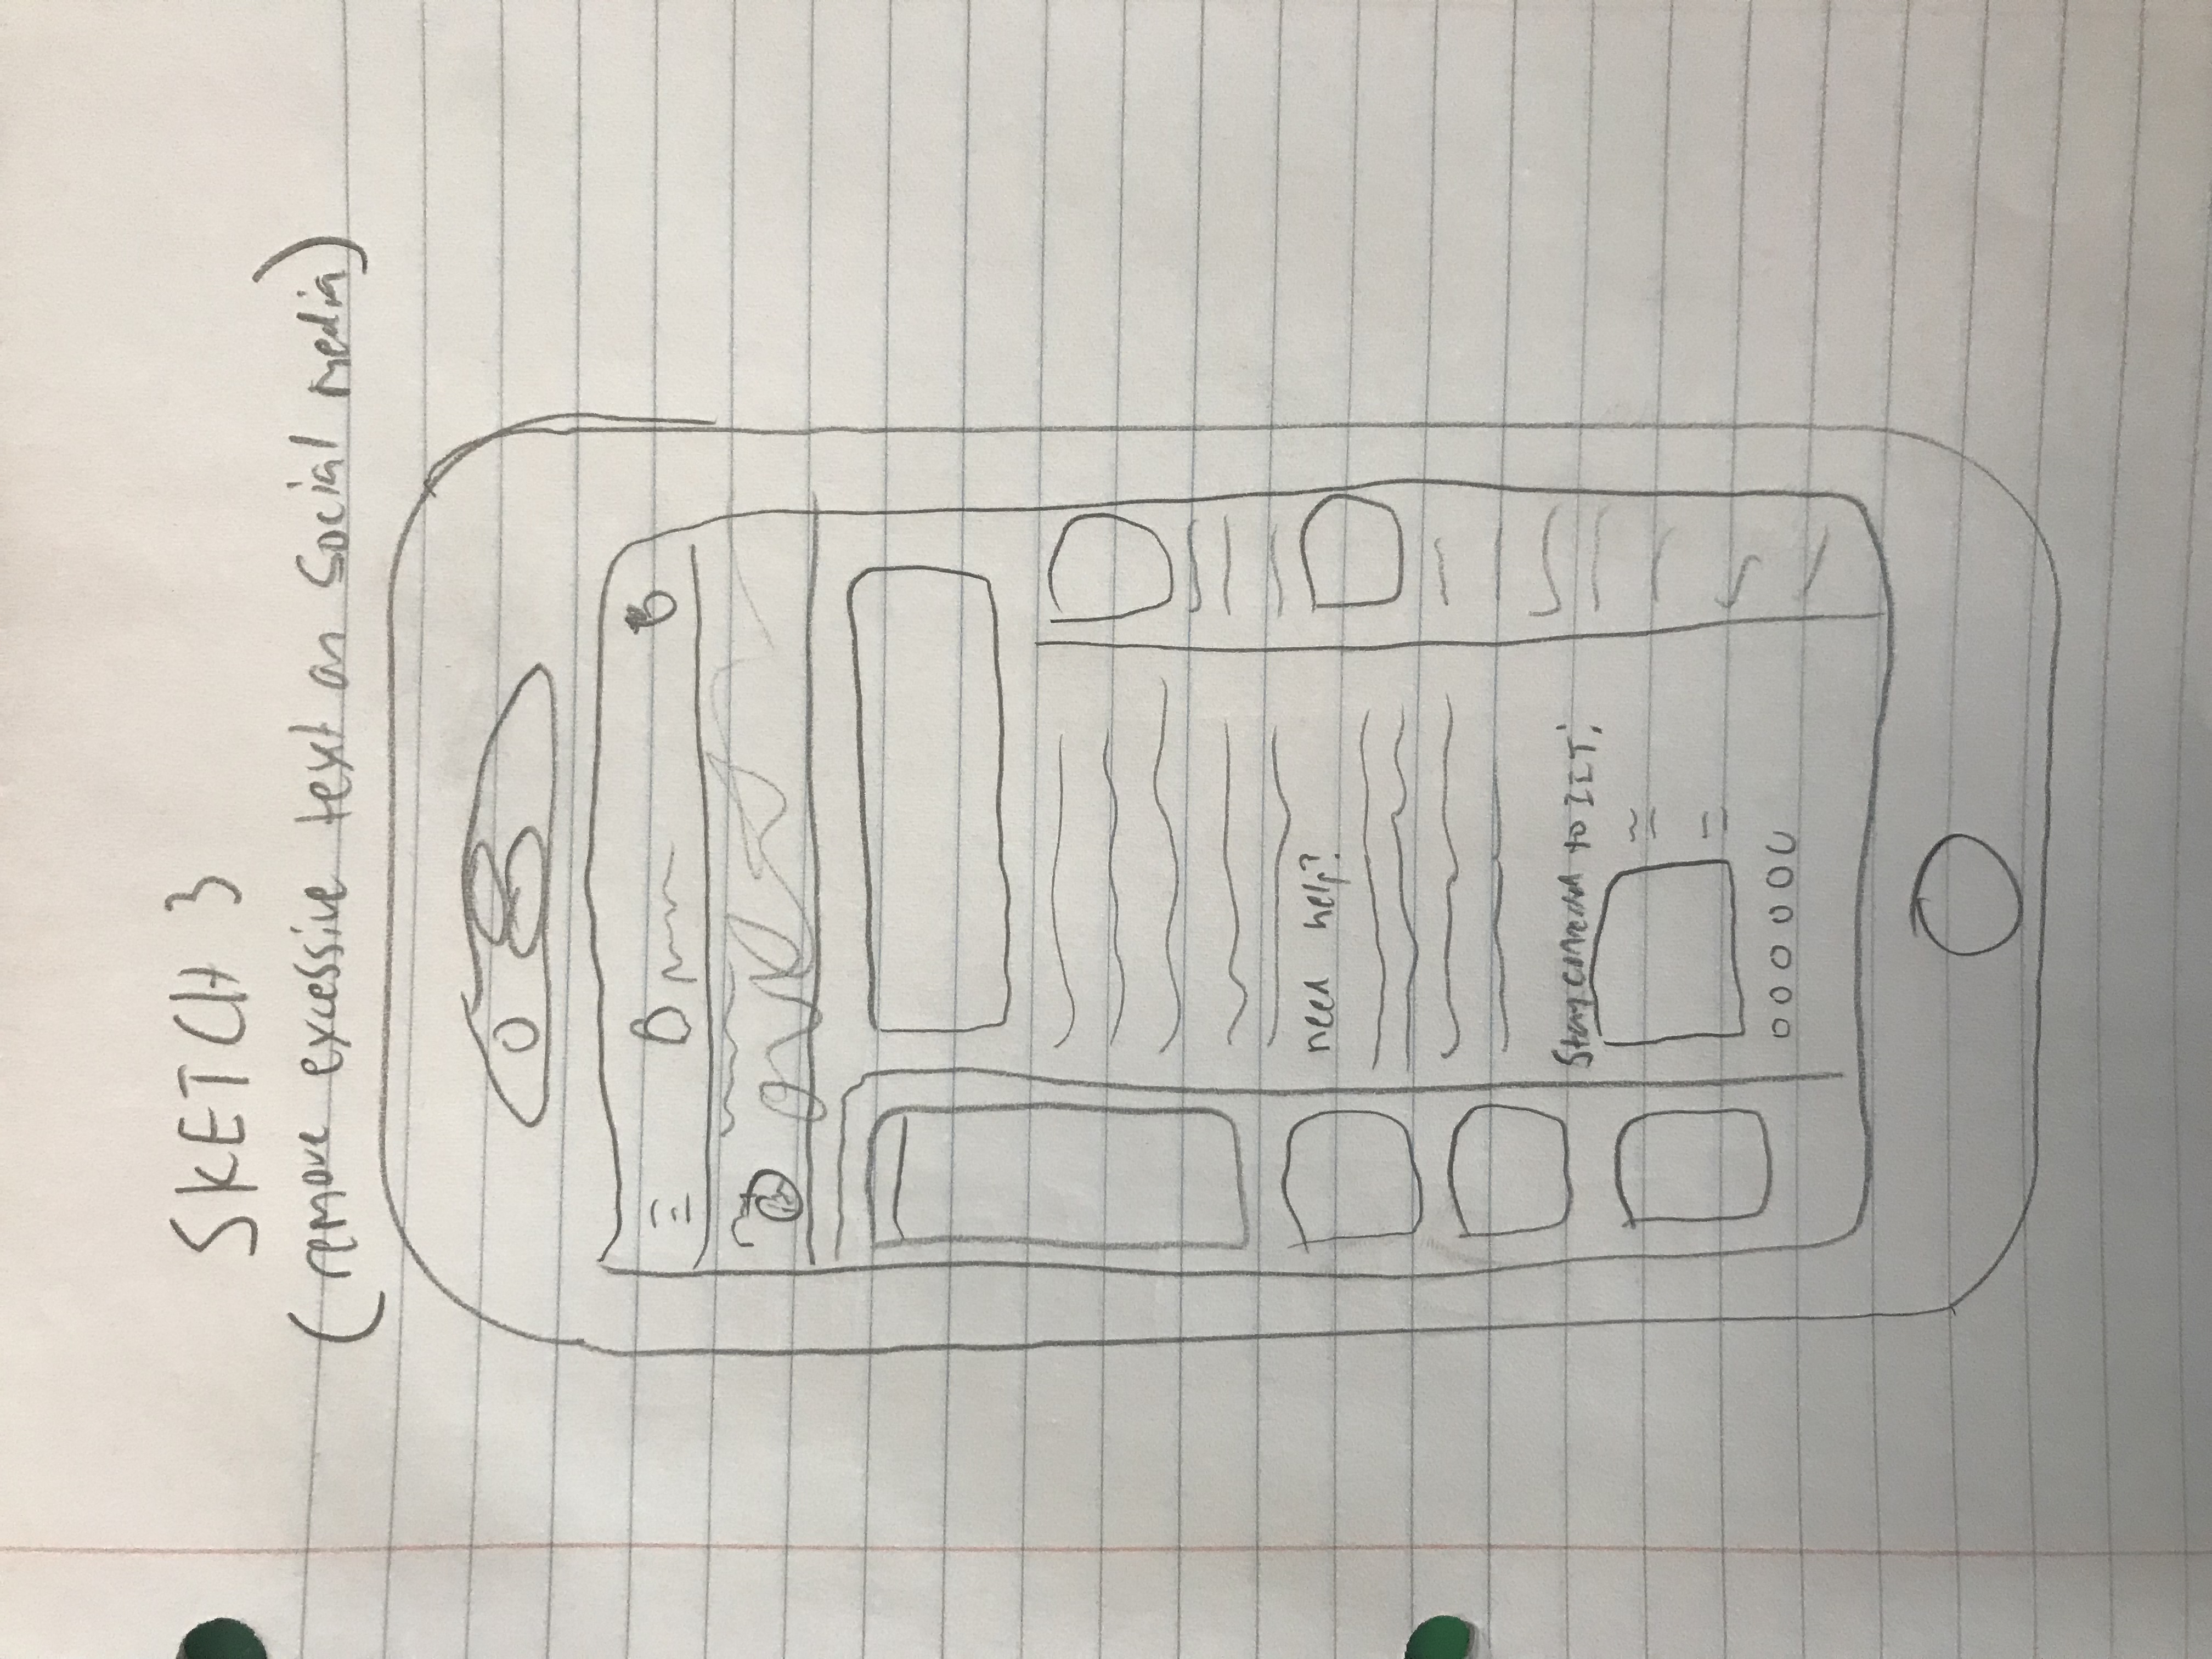 SKETCH 3
(remove excessive text on Social media)
need help?
Stay connected to IIT: